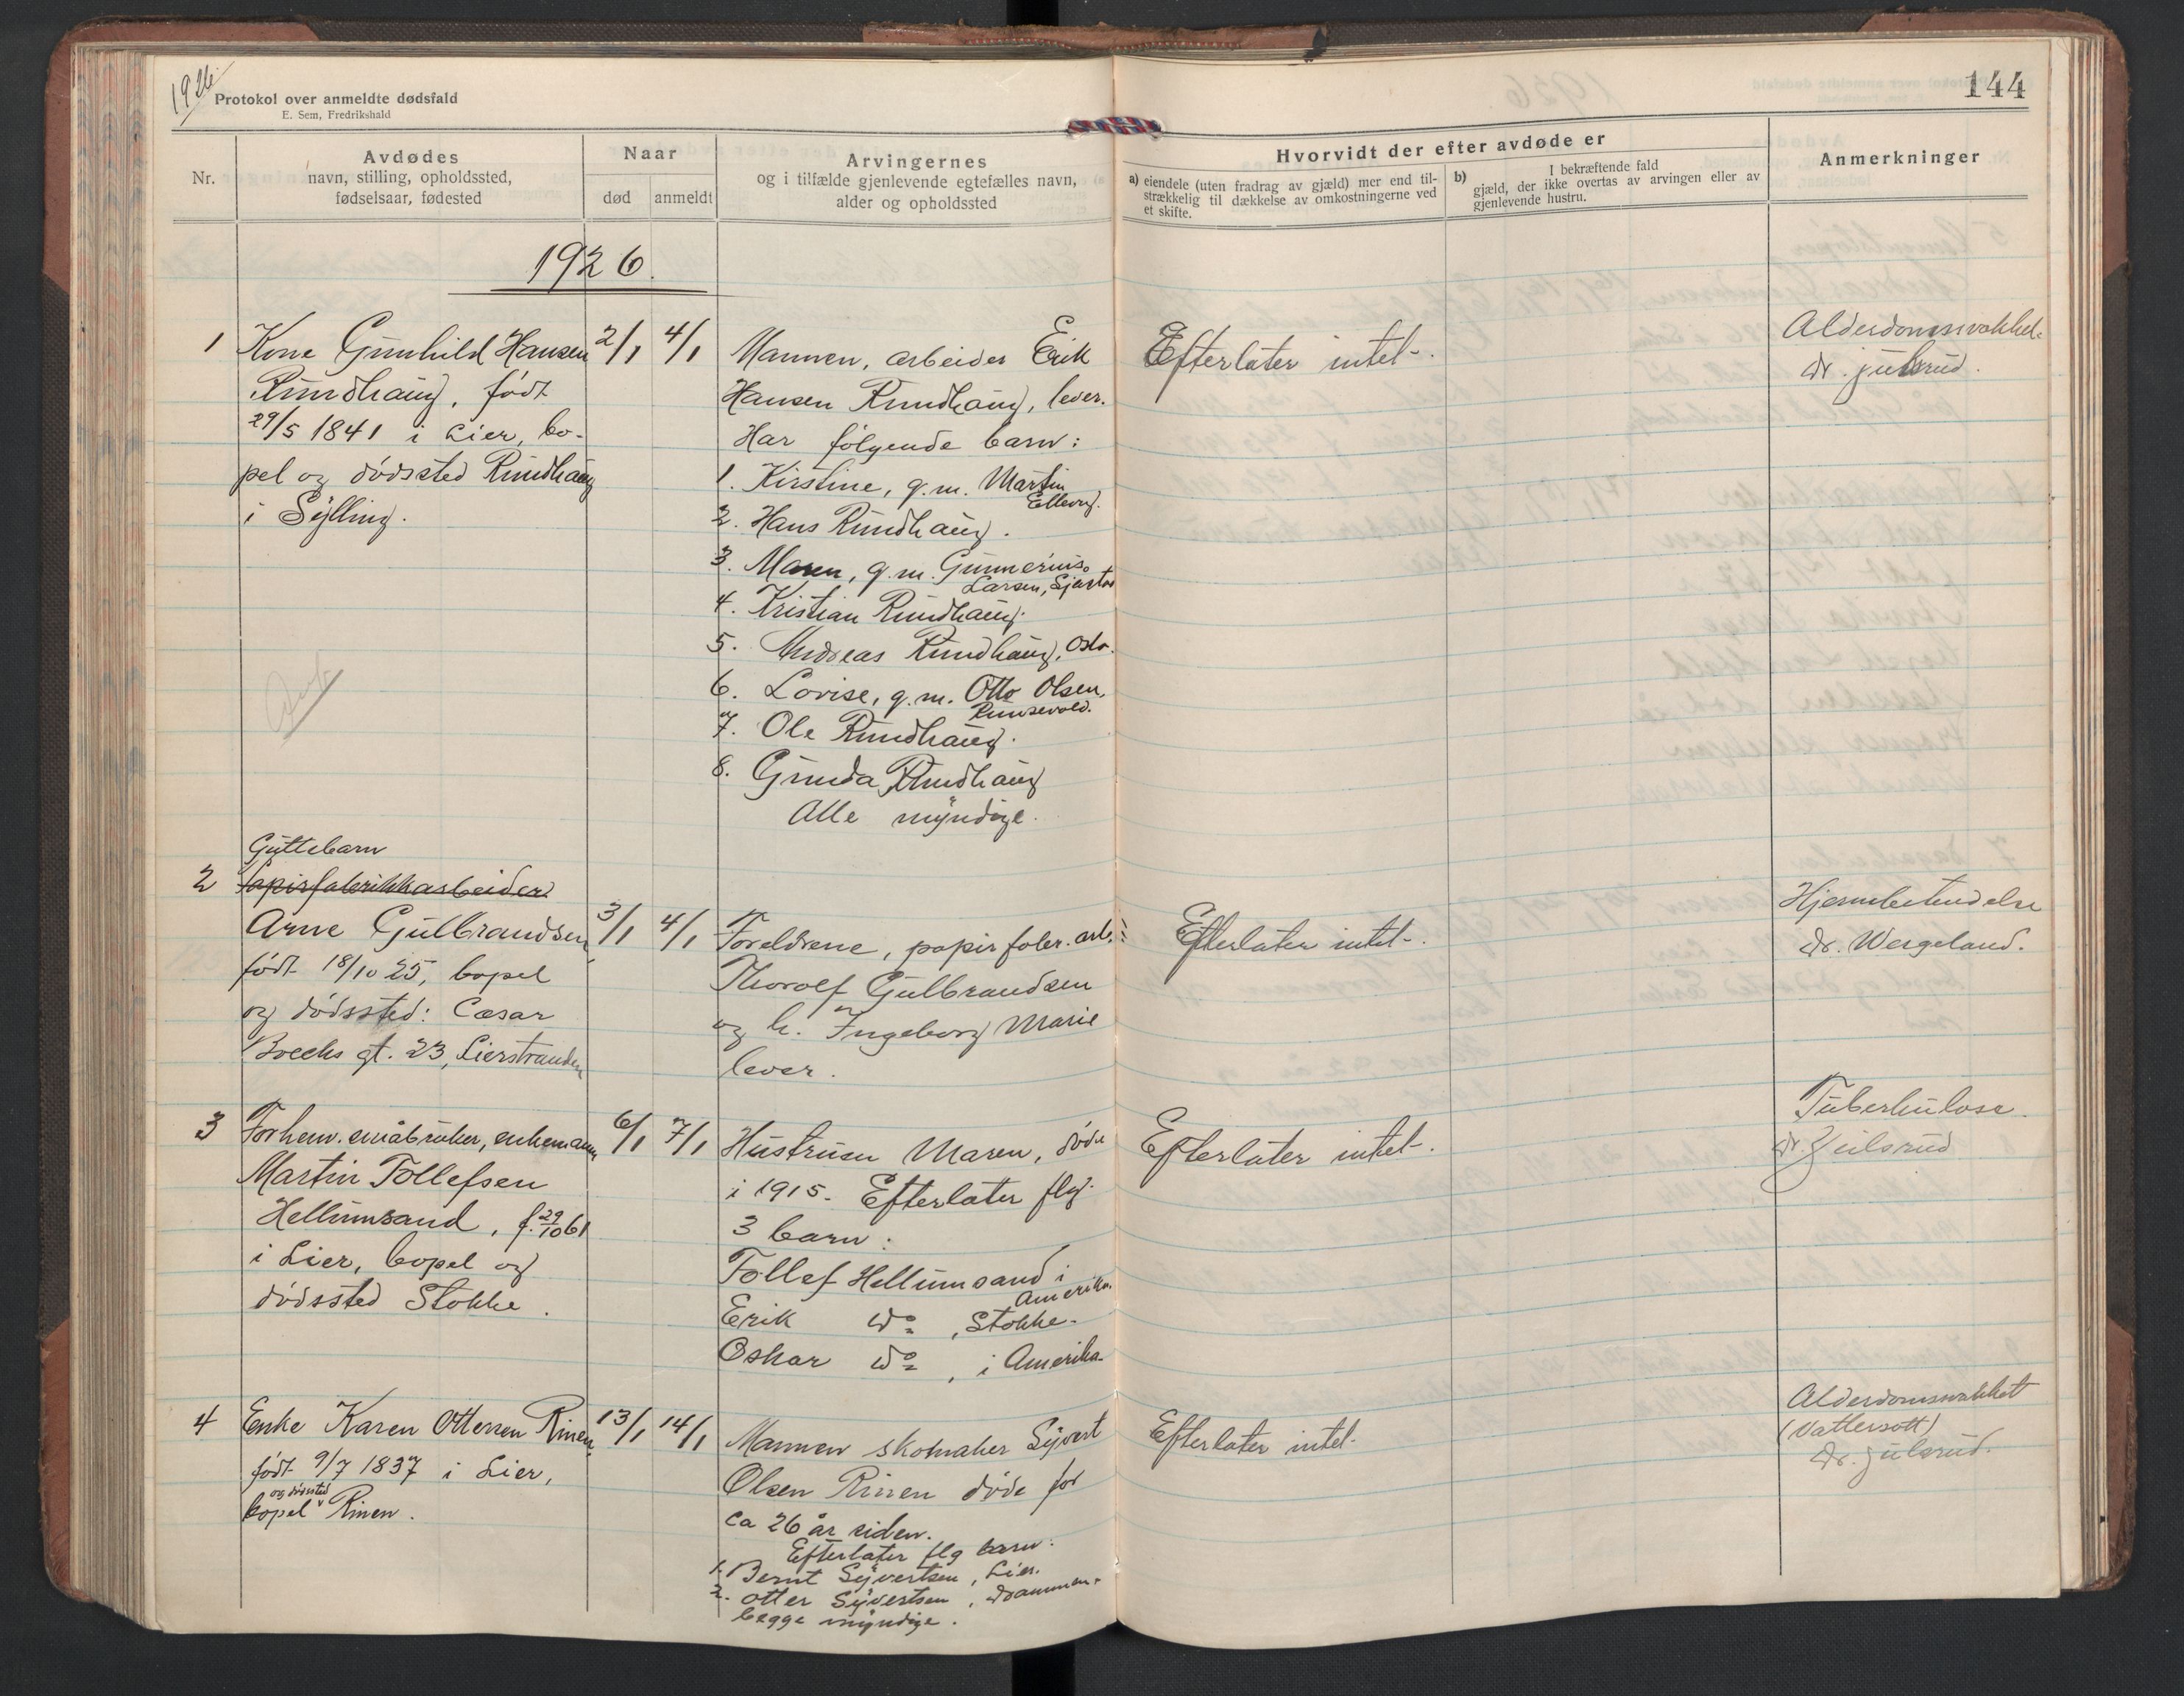 1926.
Protokol over anmeldte dødsfald
E. Sem, Fredrikshald
144
Nr.
Avdødes
navn, stilling, opholdssted,
fødselsaar, fødested
Naar
død
anmeldt
Arvingernes
og i tilfælde gjenlevende egtefælles navn,
alder og opholdssted
Hvorvidt der efter avdøde er
a) eiendele (uten fradrag av gjæld) mer end til-
strækkelig til dækkelse av omkostningerne ved
et skifte.
b) I bekræftende fald
gjæld, der ikke overtas av arvingen eller av
gjenlevende hustru.
Anmerkninger
1926.
1
Kone Gunhild Hansen
Rundhaug, født
29/5 1841 i Lier, bo-
pel og dødssted Rundhaug
i Sylling.
2/1
4/1
Mannen, arbeider Erik
Hansen Rundhaug, lever.
Har følgende barn:
1. Kirstine, g.m. Martin
Ellevog.
2. Hans Rundhaug.
3. Maren, g.m. Gunnerius
Larsen, Sjåstad
4. Kristian Rundhaug.
5. Andreas Rundhaug, Oslo.
6. Lovise, g.m. Otto Olsen,
7. Ole Rundhaug.
8. Gunda Rundhaug
Alle myndige.
Efterlater intet.
Alderdomssvakhet.
dr. Julsrud.
2
Guttebarn
Papirfabrikkarbeider
Arne Gulbrandsen,
født 18/10 25, bopel
og dødssted: Cæsar
Boecks gt. 23, Lierstranden
3/1
4/1
Foreldrene, papirfabr. arb.:
Thorolf Gulbrandsen
og h. Ingeborg Marie
lever.
Efterlater intet.
Hjernebetendelse
Dr. Wergeland.
3
Forhenv. småbruker, enkemann
Martin Tollefsen
Hellumsand, f. 29/10 61
i Lier, bopel og
dødssted Stokke.
6/1
7/1
Hustruen Maren, døde
i 1915. Efterlater flg.
3 barn:
Tollef Hellumsand i
Amerika.
Erik do, Stokke.
Oskar do, i Amerika.
Efterlater intet.
Tuberkulose.
dr. Julsrud
4
Enke Karen Ottersen Rinen,
født 9/7 1837 i Lier,
og dødssted
bopel Rinen.
13/1
14/1
Mannen skomaker Syvert
Olsen Rinen døde for
ca 26 år siden.
Efterlater flg barn:
1. Bernt Syvertsen, Lier.
2. Otter Syvertsen, Drammen.
begge myndige.
Efterlater intet.
Alderdomssvakhet
(Vattersott)
Dr. Julsrud.